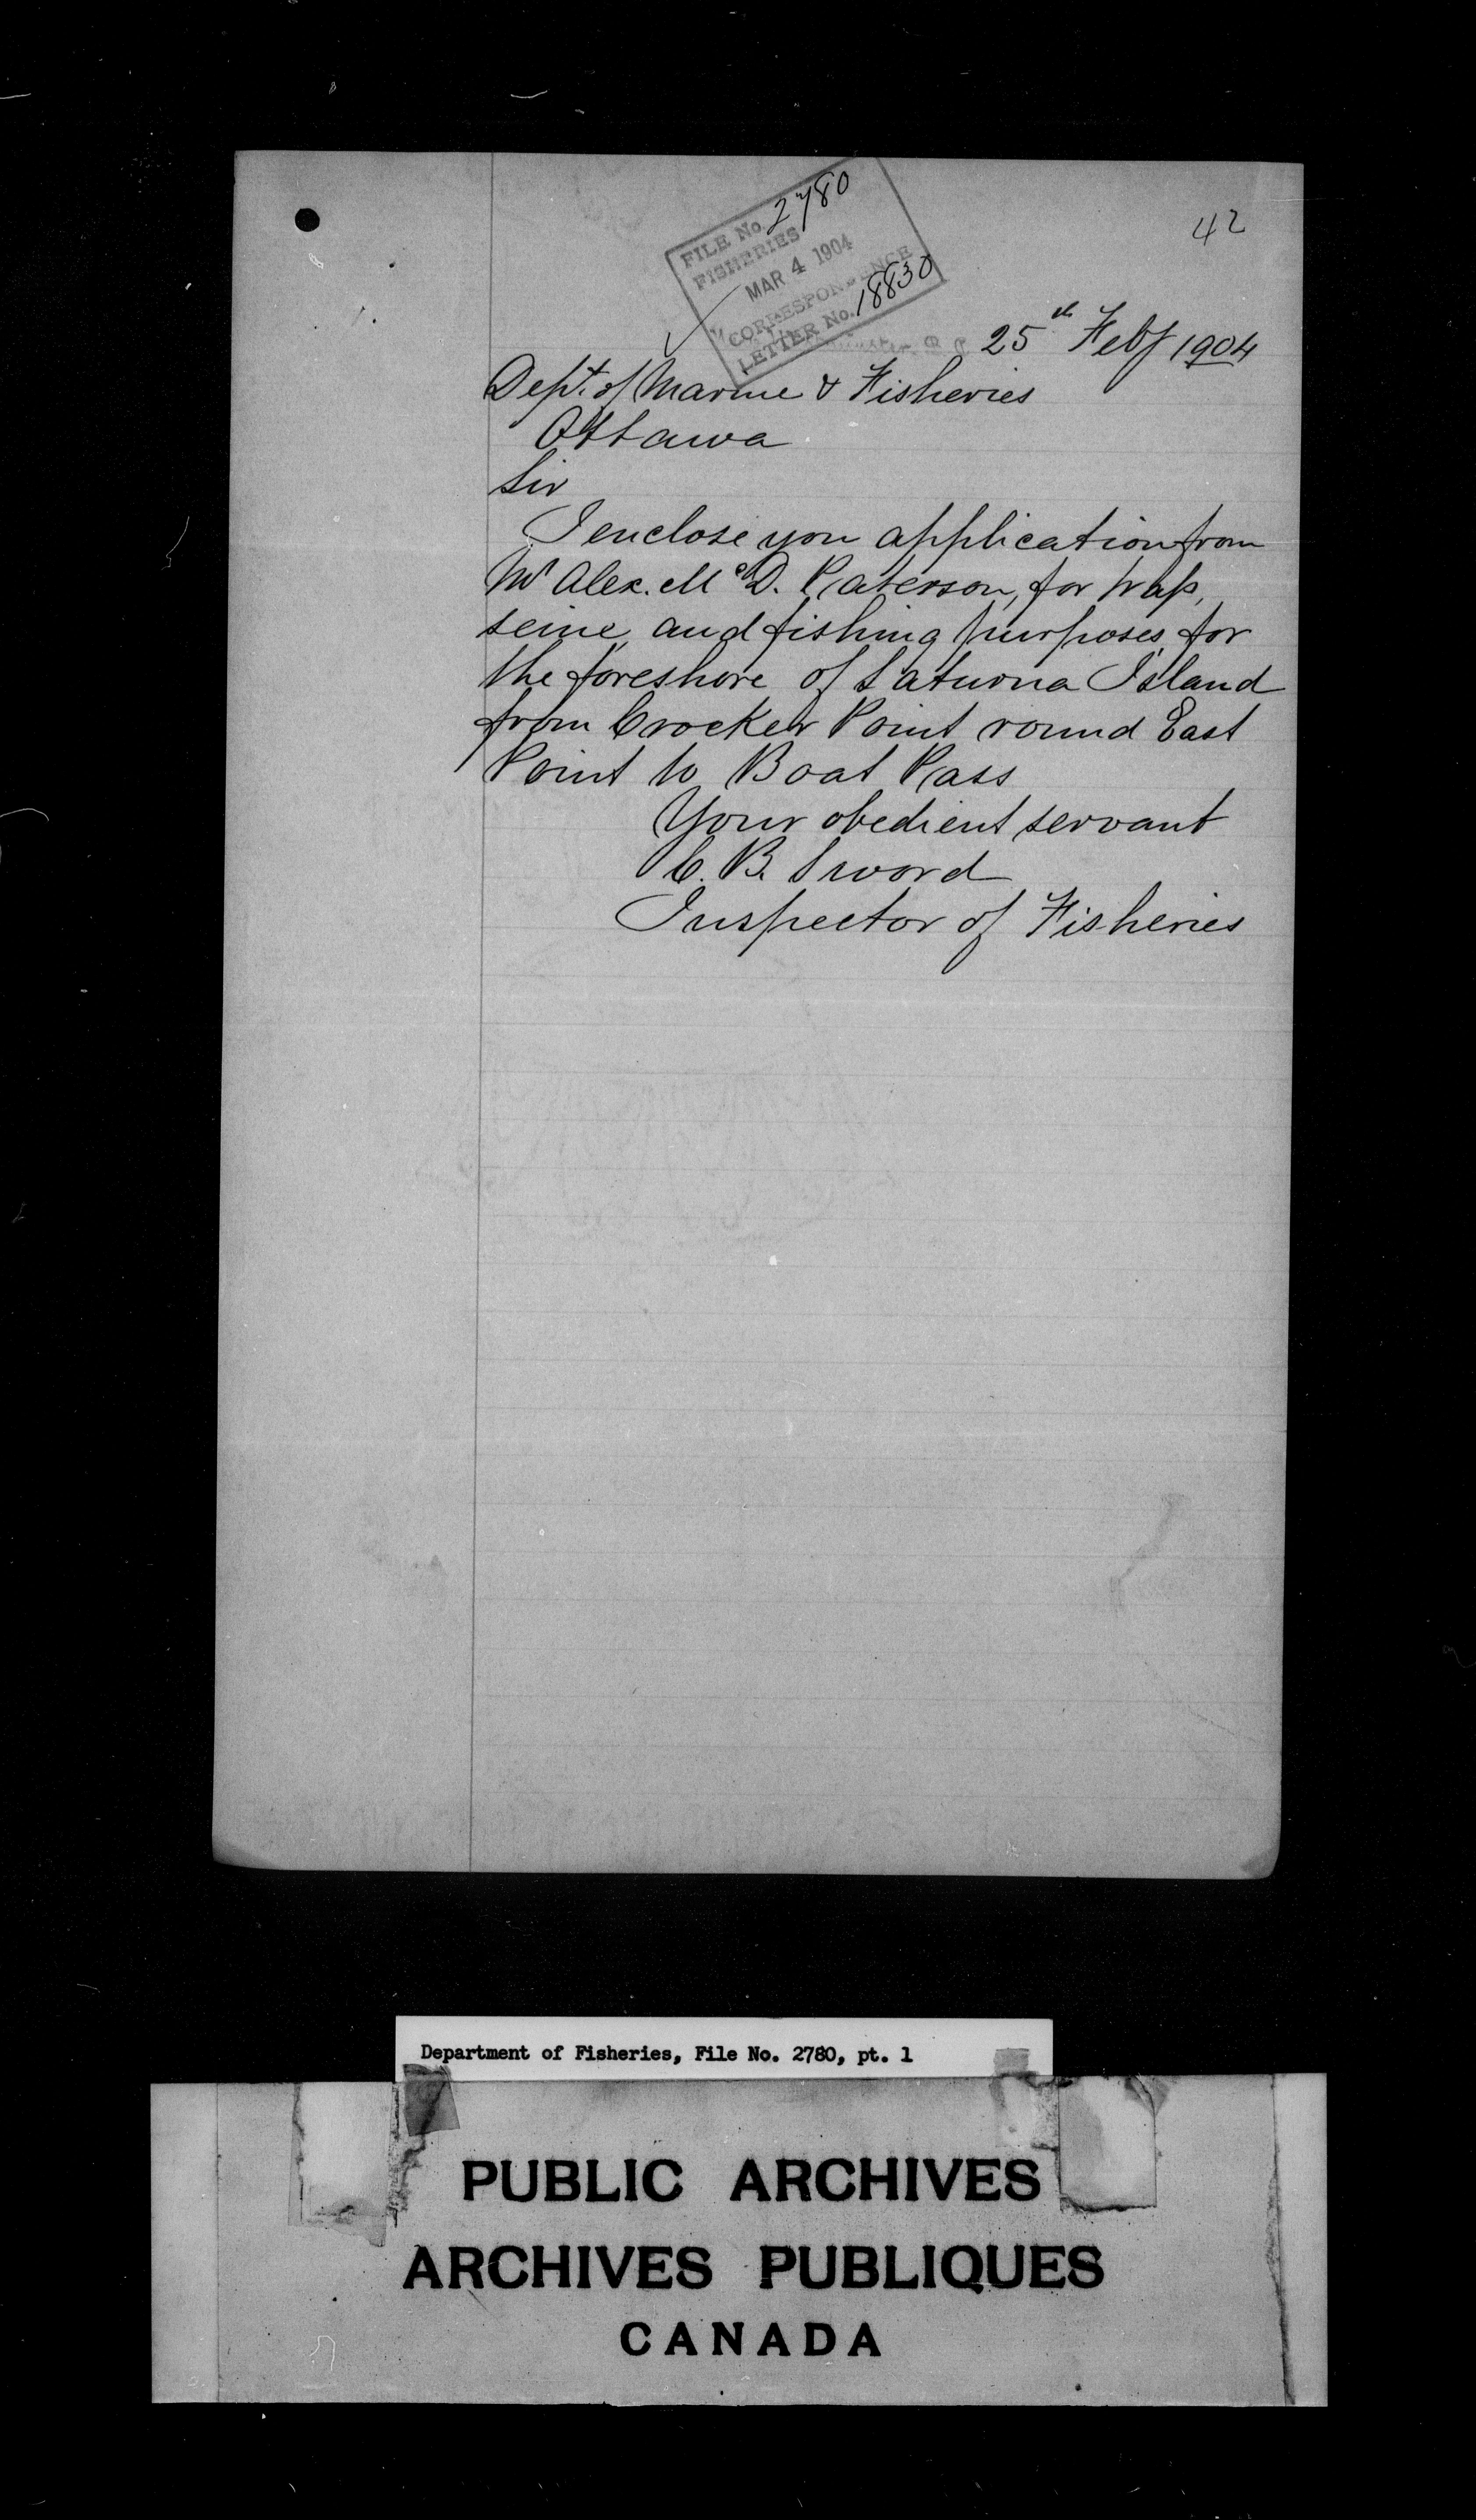 42
FILE No. 2780
FISHERIES
MAR 4 1904
CORRESPONDENCE
LETTER No. 18830
25th Feby 1904
Dept. of Marine & Fisheries
Ottawa
Sir
I enclose you application from
Mr Alex. McD. Paterson, for trap,
seine, and fishing purposes, for
the foreshore of Saturna Island
from Crocker Point round East
Point to Boat Pass
Your obedient servant
C. B. Sword
Inspector of Fisheries
Department of Fisheries, File No. 2780, pt. 1
PUBLIC ARCHIVES
ARCHIVES PUBLIQUES
CANADA